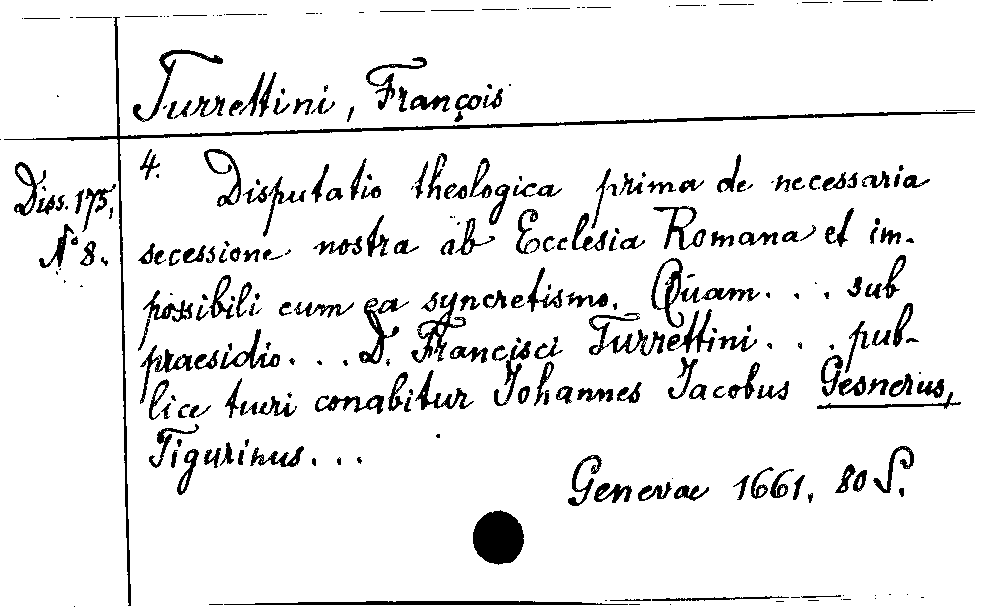 Turrettini, François
Diss. 175,
N° 8.
4. Disputatio theologica prima de necessaria
secessione nostra ab Ecclesia Romana et im-
possibili cum ea syncretismo. Quam... sub
praesidio... D. Francisci Turrettini... pub-
lice tueri conabitur Johannes Jacobus Gesnerus,
Tigurinus...
Genevae 1661. 80 S.